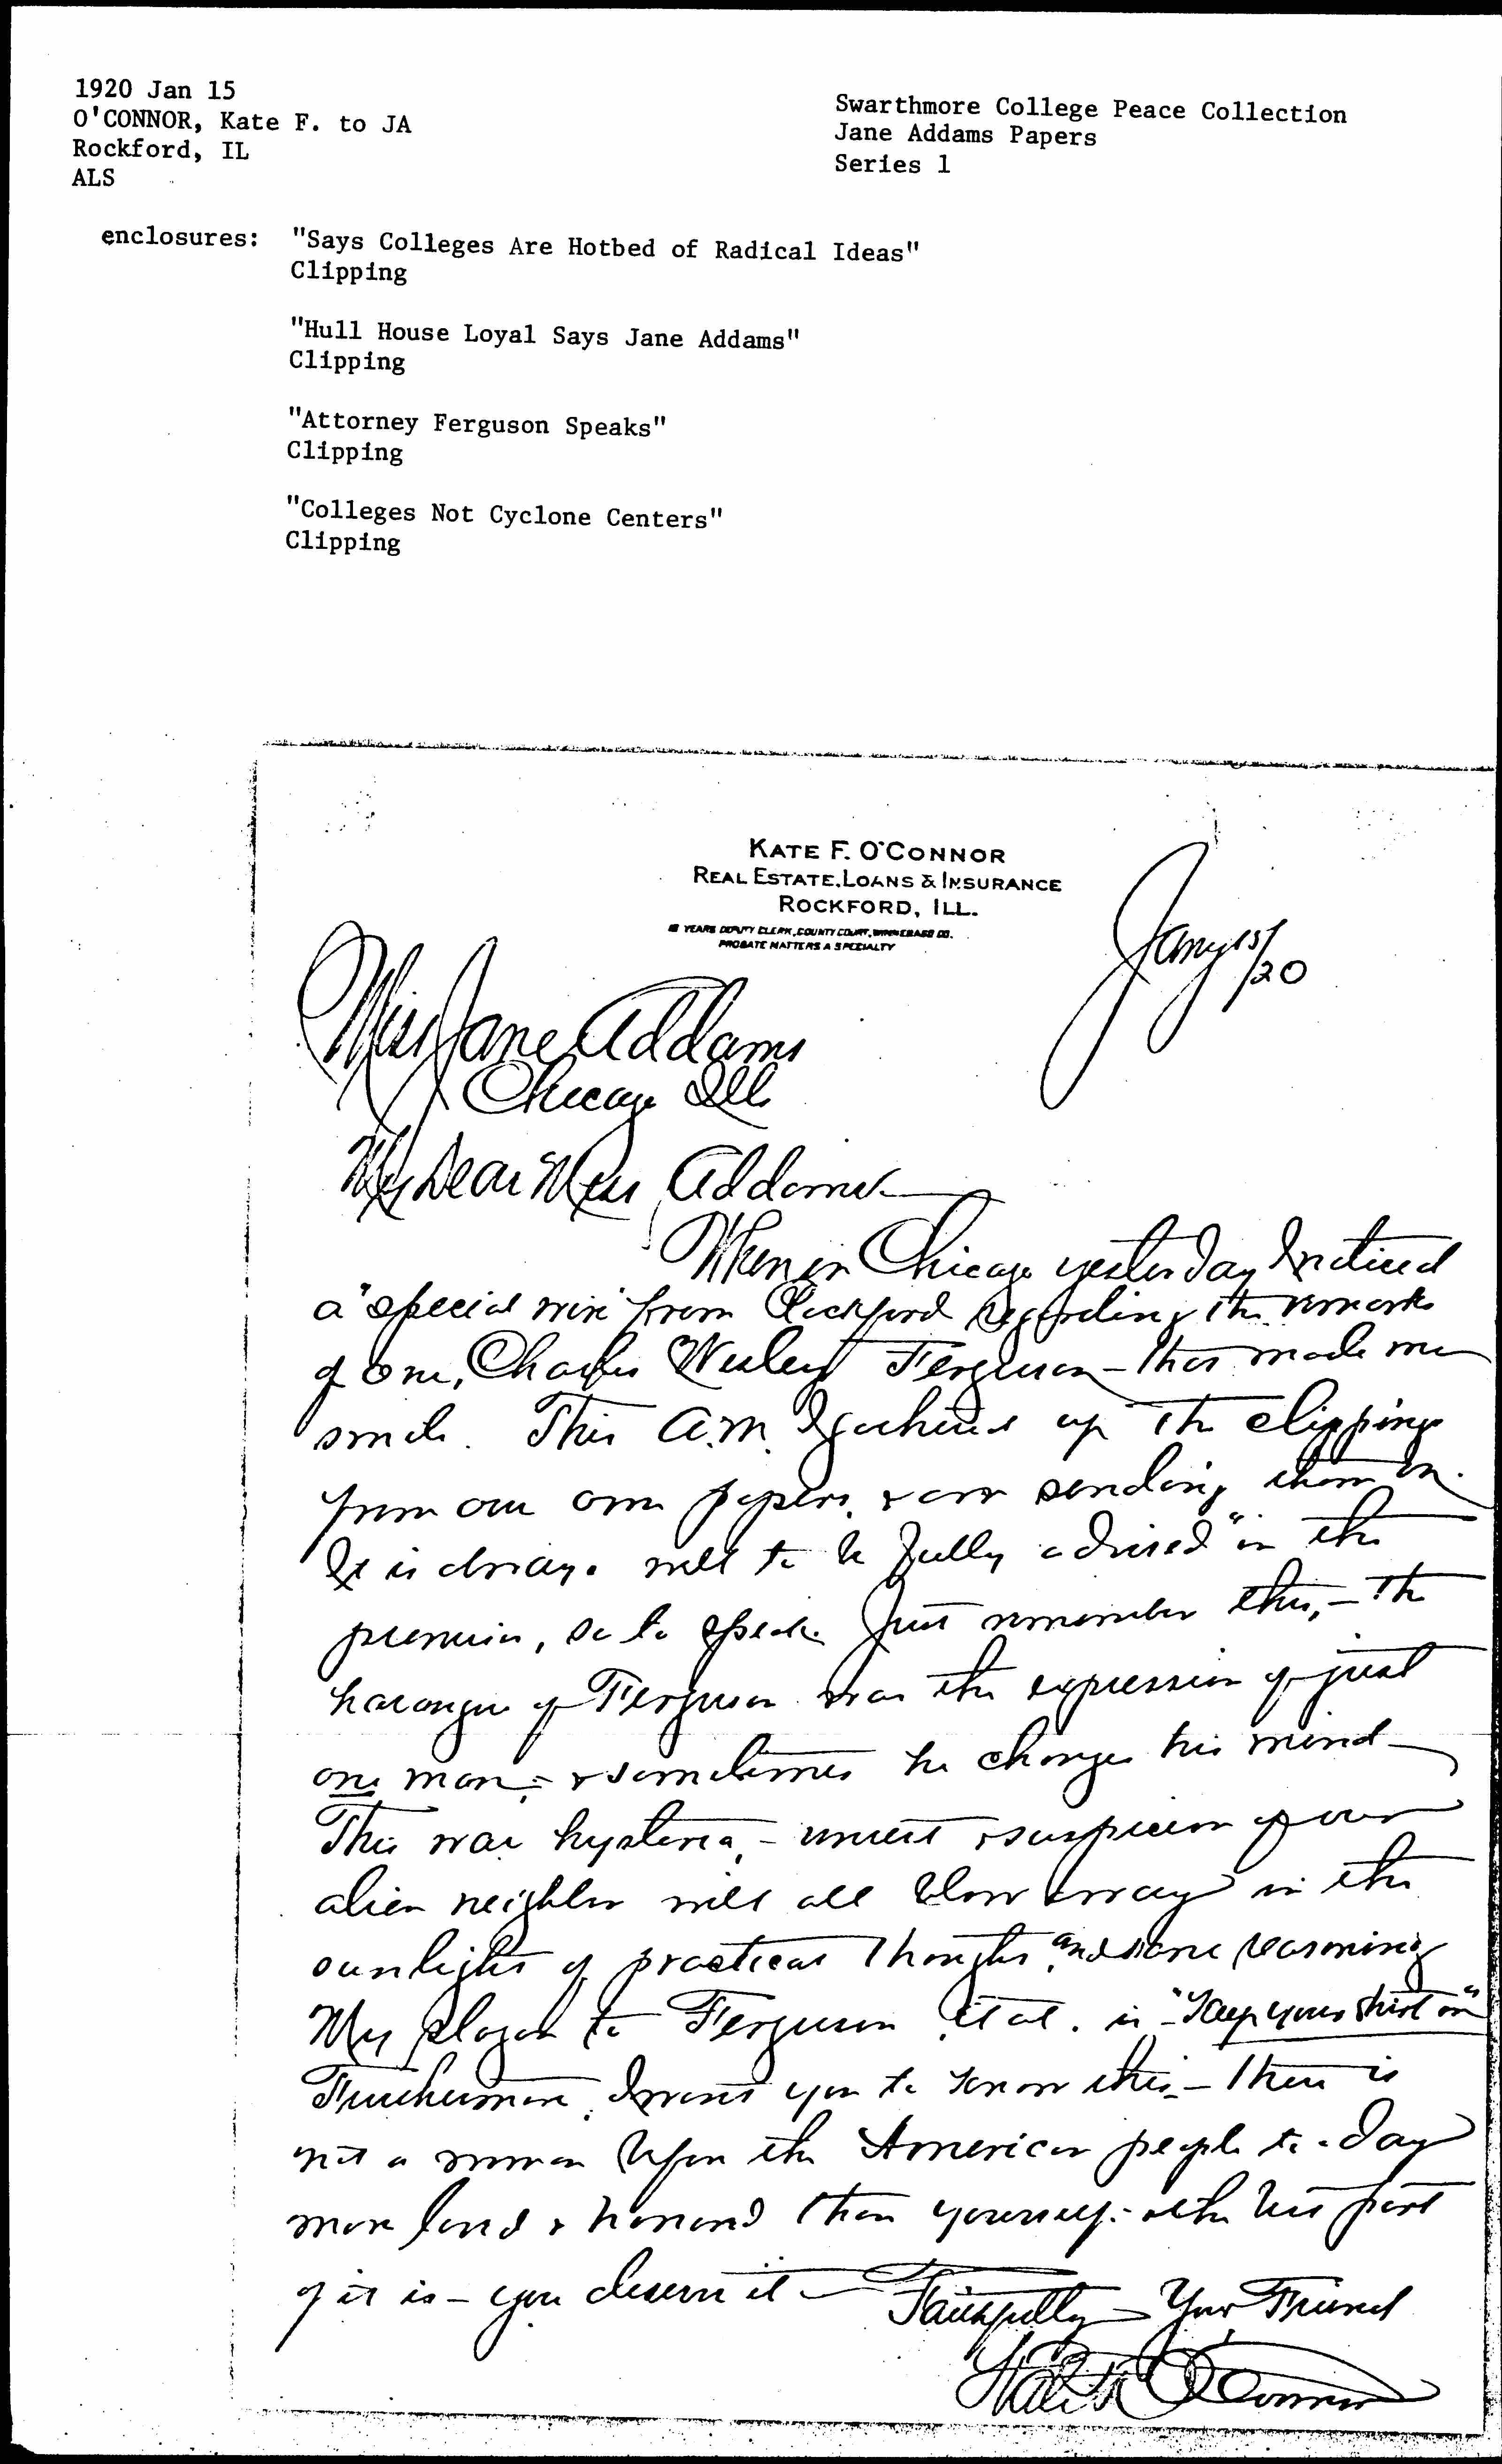 1920 Jan 15
O'CONNOR, Kate F. to JA
Rockford, IL
ALS
Swarthmore College Peace Collection
Jane Addams Papers
Series 1
enclosures: "Says Colleges Are Hotbed of Radical Ideas"
Clipping
"Hull House Loyal Says Jane Addams"
Clipping
"Attorney Ferguson Speaks"
Clipping
"Colleges Not Cyclone Centers"
Clipping
KATE F. O'CONNOR
REAL ESTATE, LOANS & INSURANCE
ROCKFORD, ILL.
YEARS DEPUTY CLERK, COUNTY COURT, WINNEBAGO CO.
PROBATE MATTERS A SPECIALTY
Jany 15/20
Miss Jane Addams
Chicago Ill.
My Dear Miss Addams—
When in Chicago yesterday I noticed
a "special wire from Rockford regarding the remarks
of one, Charles Wesley Ferguson — that made me
smile. This A.M. I gathered up the clippings
from our own papers, & am sending them on.
It is always well to be fully advised" in the
premises, so to speak. Just remember this, — the
harangue of Ferguson was the expression of just
one man, — & sometimes he changes his mind —
This war hysteria, — unrest & suspicion of our
alien neighbor will all blow away in the
sunlight of practical thought and sane reasoning
My slogan to Ferguson et al. is — "Keep your shirt on"
Furthermore, I want you to know this — there is
not a woman upon the American people to-day
more loved & honored than yourself. — & the best part
of it is — you deserve it — Faithfully — Your Friend
Kate F. O'Connor